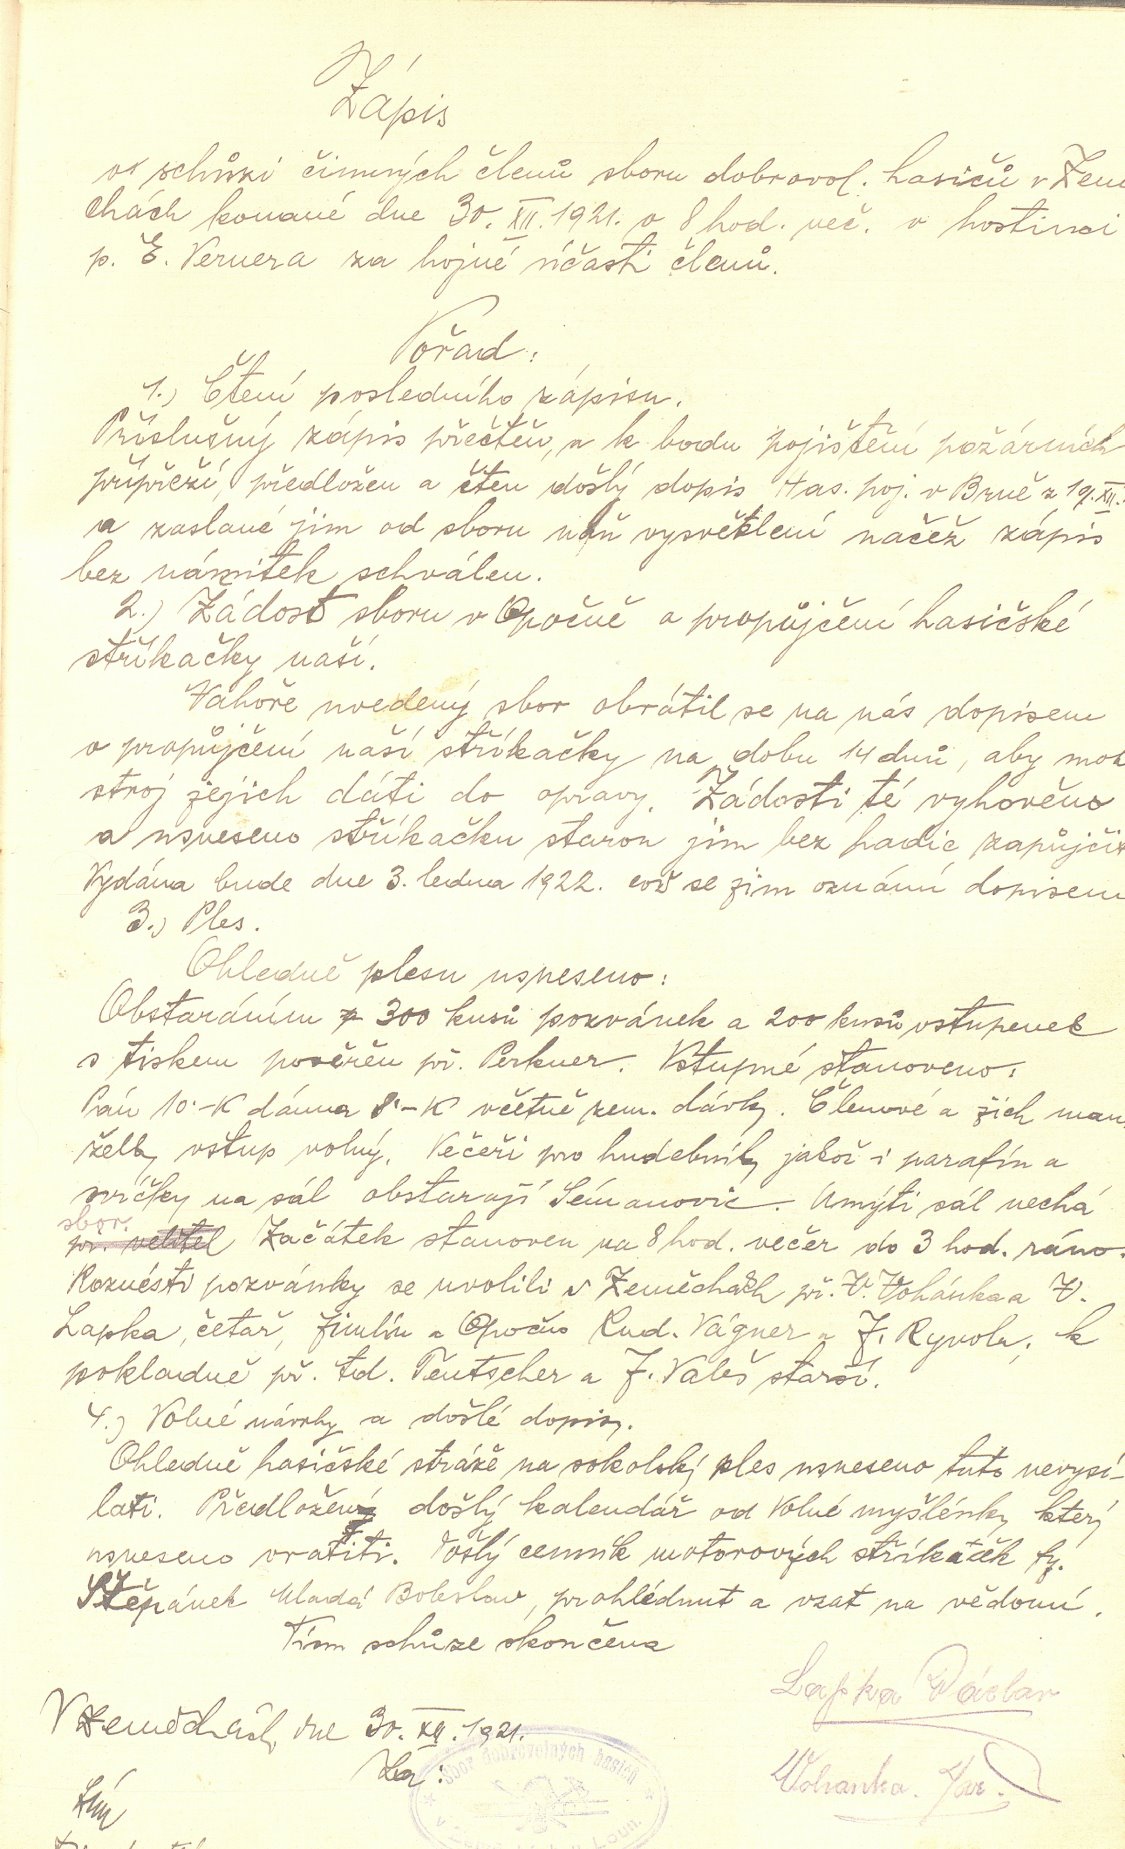 Zápis
o schůzi činných členů sboru dobrovol. hasičů v Zem
chách konané dne 30. XII. 1921. o 8 hod. več. v hostinci
p. E. Vernera za hojné účasti členů.
Pořad:
1.) Čtení posledního zápisu.
Příslušný zápis přečten, a k bodu pojištění požárních
přípřeží, předložen a čten došlý dopis Has. poj. v Brně z 19. XII.
a zaslané jim od sboru naň vysvětlení načež zápis
bez námitek schválen.
2.) Žádost sboru v Opočně o propůjčení hasičské
stříkačky naší.
Nahoře uvedený sbor obrátil se na nás dopisem
o propůjčení naší stříkačky na dobu 14 dnů, aby moh
stroj jejich dáti do opravy. Žádosti té vyhověno
a usneseno stříkačku starou jim bez hadic zapůjčit
Vydána bude dne 3. ledna 1922. což se jim oznámí dopisem
3.) Ples.
Ohledně plesu usneseno:
Obstaráním 300 kusů pozvánek a 200 kusů vstupenek
s tiskem pověřen př. Perkner. Vstupné stanoveno:
Pán 10·-K dáma 8·-K včetně zem. dávky. Členové a jich man
želky vstup volný. Večeři pro hudebníky jakož i parafín a
svíčky na sál obstarají Sémanovic. Umýti sál nechá
sbor.
př. velitel Začátek stanoven na 8 hod. večer do 3 hod. ráno.
Roznésti pozvánky se uvolili v Zeměchách př. V. Vohánka a V.
Lapka, četař, Jimlín a Opočno Rud. Vágner a J. Ryvola, k
pokladně př. td. Teutscher a J. Valeš starší.
4.) Volné návrhy a došlé dopisy.
Ohledně hasičské stráže na sokolský ples usneseno tuto nevysí-
lati. Předložený došlý kalendář od Volné myšlénky který
usneseno vrátiti. Došlý cenník motorových stříkaček fy.
Štěpánek Mladá Boleslav, prohlédnut a vzat na vědomí.
Tím schůze skončena
Lapka Václav
V Zeměchách, dne 30. XII. 1921.
Za:
Sbor dobrovolných hasičů
Wohanka. Jar.